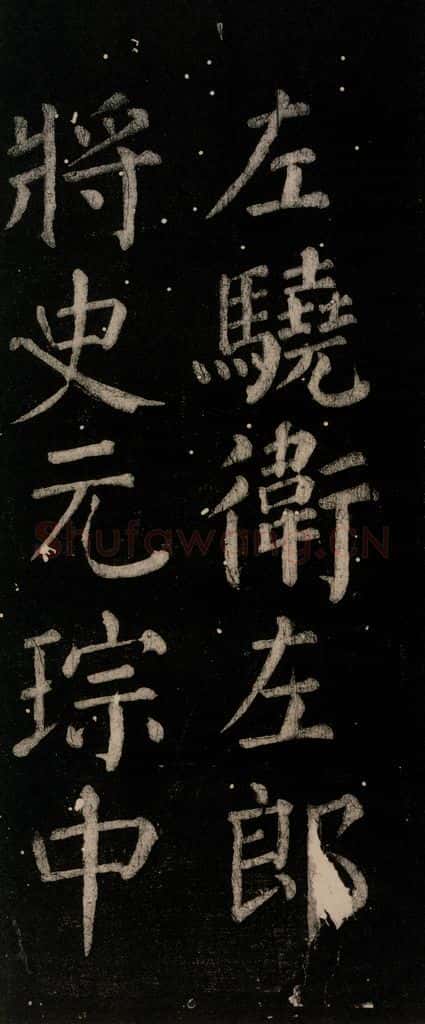 左驍衛左郎
將史元琮中
Shufawang.CN